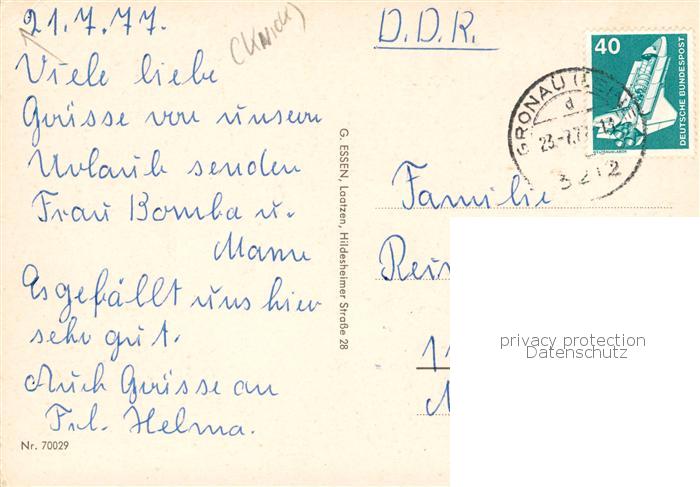 21.7.77.
(Knick)
Viele liebe
Grüsse von unsern
Urlaub senden
Frau Bomba u.
Mann
Es gefällt uns hier
sehr gut.
Auch Grüsse an
Frl. Helma.
Nr. 70029
G. ESSEN, Laatzen, Hildesheimer Straße 28
D.D.R.
40
DEUTSCHE BUNDESPOST
GRONAU (LEINE)
d
23.-7.77
3212
Familie
privacy protection
Datenschutz